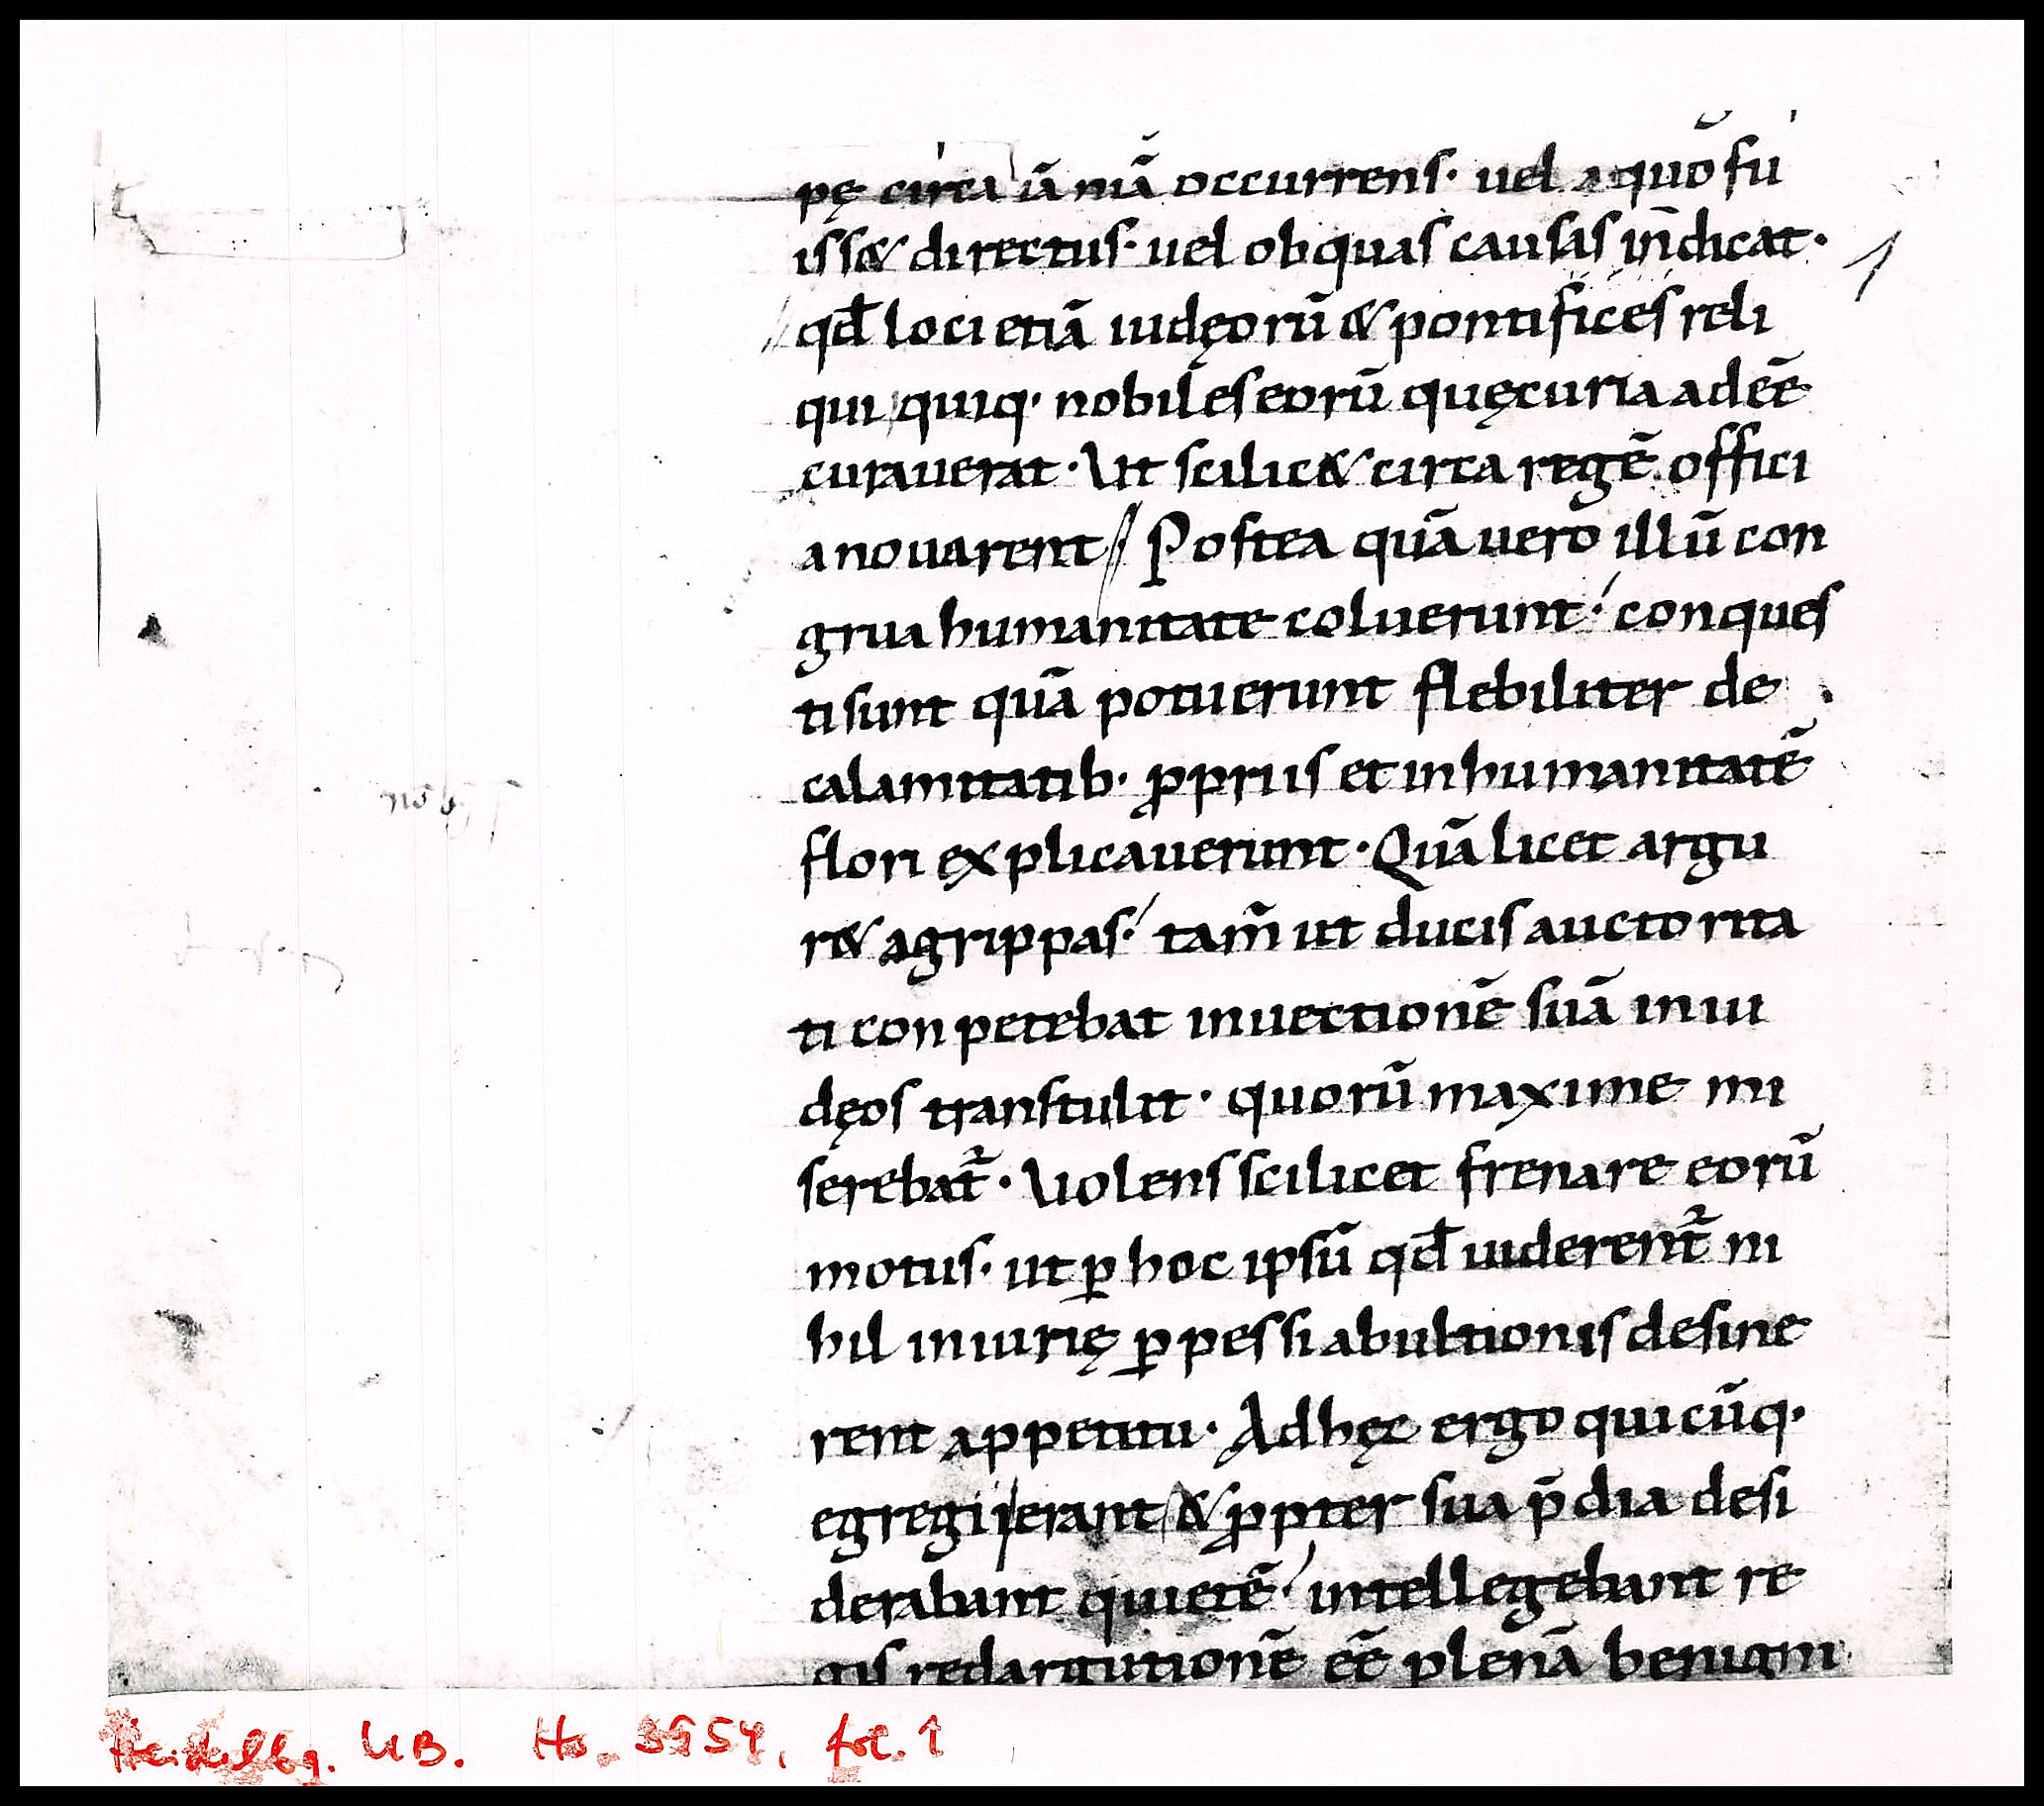 pę circa iā niā occurrens· uel a quo fu
iss& directus· uel obquas causas in̄dicat·
1
qđ loci etiā iudęorū & pontifices reli
qui quiq· nobiles eorū quę curia adeē
curauerat· Ut scilic& circa regē offici
a nouarent· Postea quā uero illū con
grua humanitate coluerunt· conques
ti sunt quā potuerunt flebiliter de
calamitatib· ꝓpriis et inhumanitatē
flori explicauerunt· Quā licet argu
r& agrippas· tam̄ ut ducis auctorita
ti conpetebat inuectionē suā in iu
dęos transtulit· quorū maxime mi
serebat᷑· Uolens scilicet frenare eorū
motus· ut ꝑ hoc ipsū qđ uiderent᷑ ni
hil iniurię ꝑpessi ab ultionis desine
rent appetitu· Ad hęc ergo quicūq·
egregii erant & ꝓpter sua p̄dia desi
derabunt quietē· intellegebant re
gis redargutionē eē plenā benigni
Heidelbg. UB. Hs. 3954, fol. 1